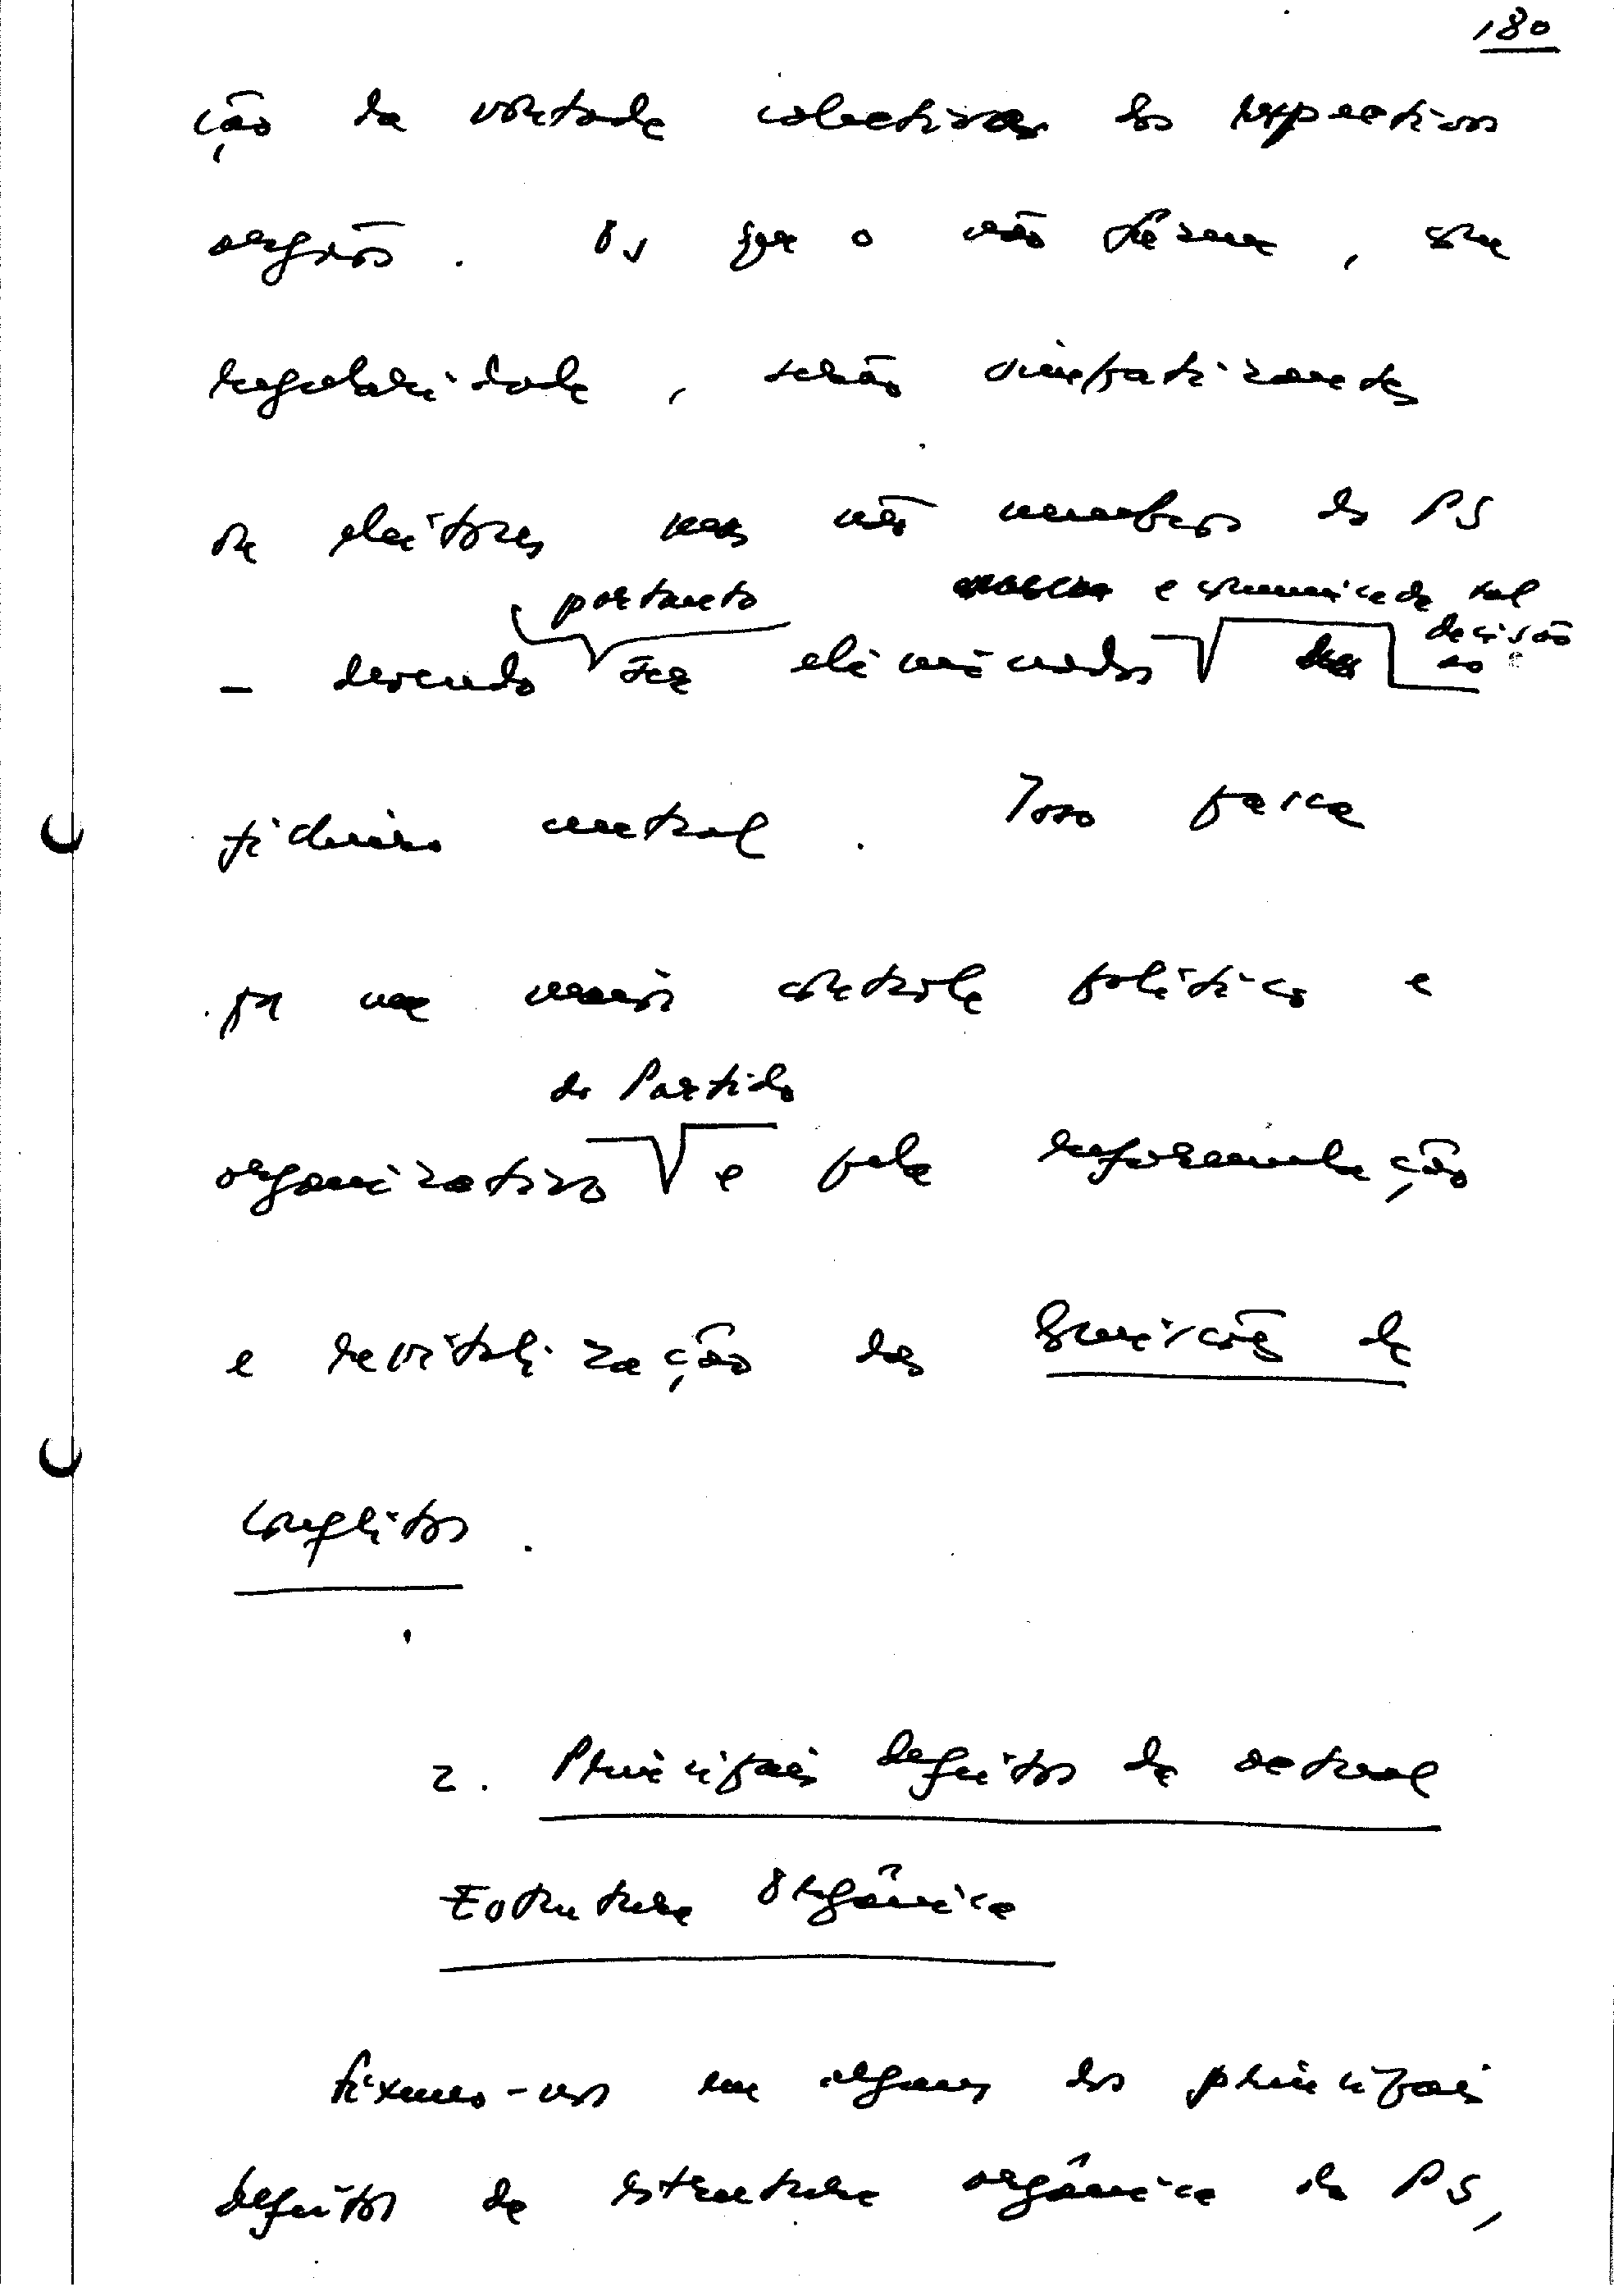 180
ção da vontade colectiva dos respectivos
orgãos. Os que o não fizerem, com
regularidade, serão simpatizantes
ou eleitores mas não membros do PS
portanto e comunicada tal
decisão
- devendo ser eliminados ao
ficheiro central. Isso passa
por um maior controle político e
do Partido
organizativo e pela reformulação
e revitalização das Comissões de
Conflitos.
2. Principais defeitos da actual
Estrutura Orgânica
Fixemo-nos em alguns dos principais
defeitos da estrutura orgânica do PS,